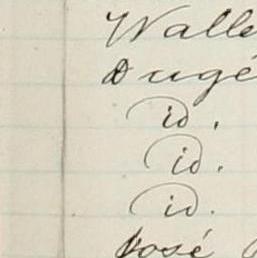 Walle
Dugé
id.
id.
id.
José